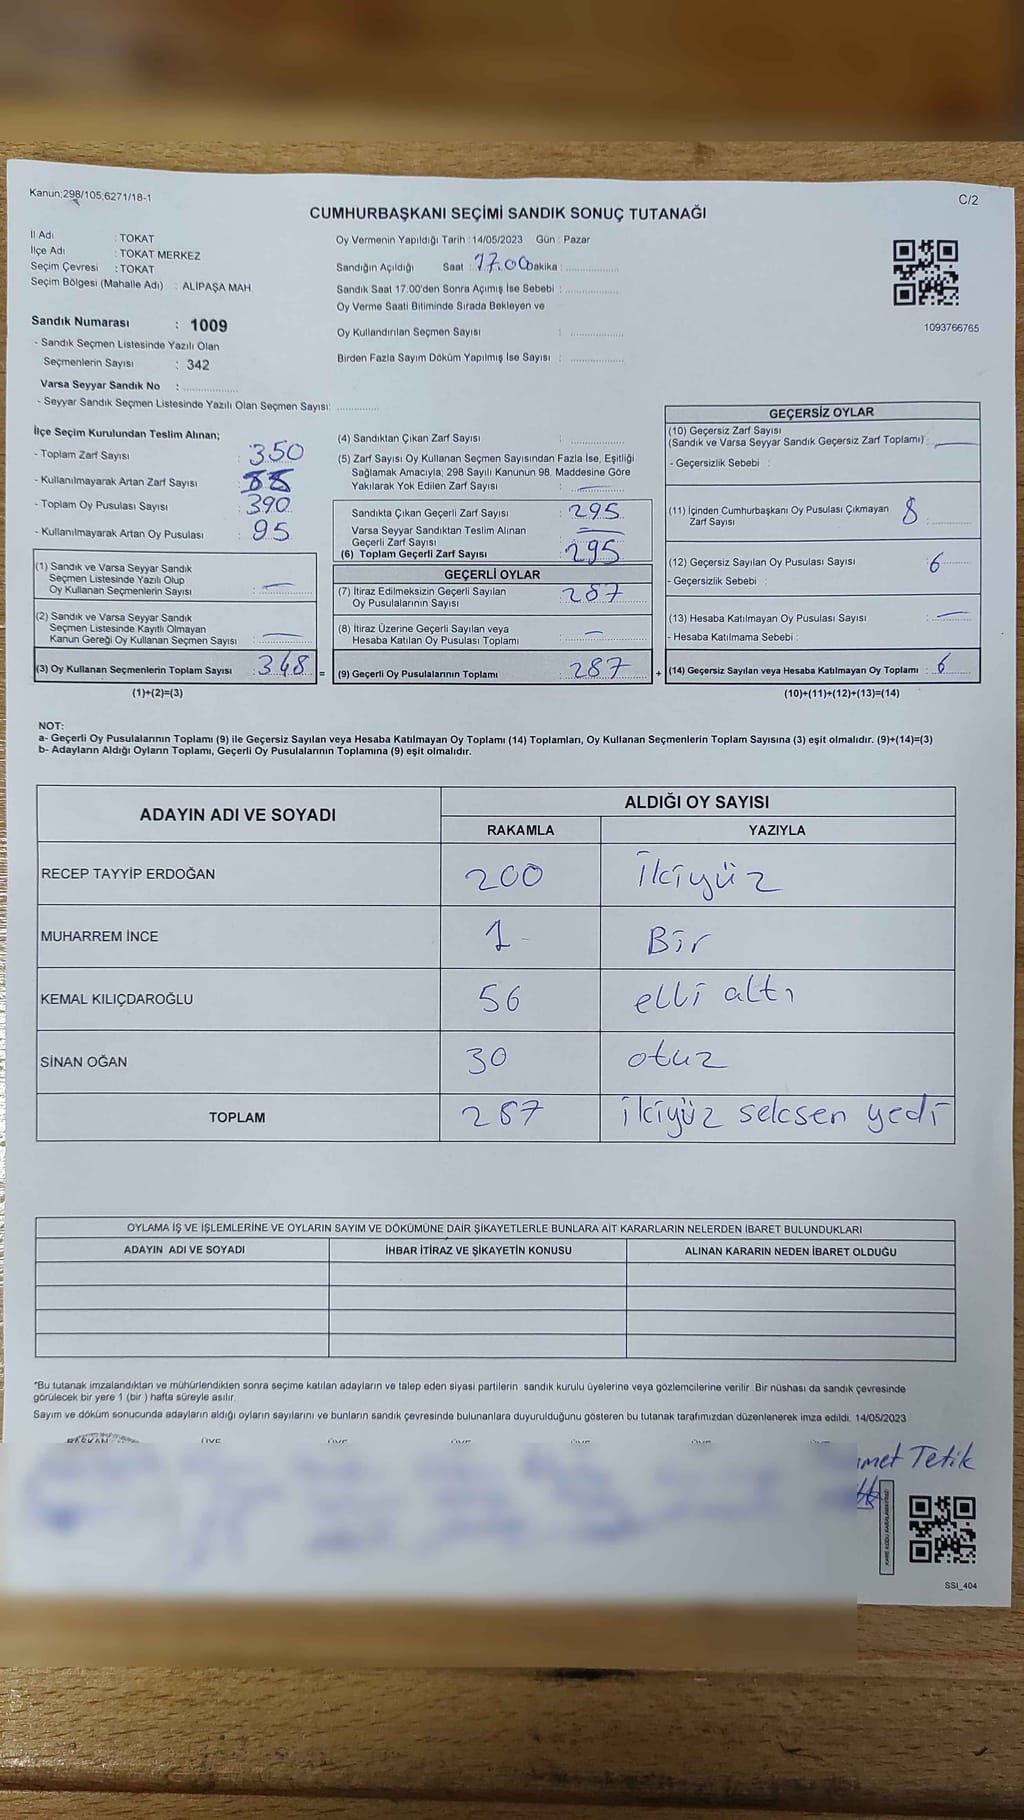 Kanun;298/105,6271/18-1
C/2
CUMHURBAŞKANI SEÇİMİ SANDIK SONUÇ TUTANAĞI
İl Adı : TOKAT
İlçe Adı : TOKAT MERKEZ
Seçim Çevresi : TOKAT
Seçim Bölgesi (Mahalle Adı) : ALİPAŞA MAH.
Sandık Numarası : 1009
- Sandık Seçmen Listesinde Yazılı Olan
Seçmenlerin Sayısı : 342
Varsa Seyyar Sandık No :
- Seyyar Sandık Seçmen Listesinde Yazılı Olan Seçmen Sayısı:
Oy Vermenin Yapıldığı Tarih : 14/05/2023 Gün : Pazar
Sandığın Açıldığı Saat : 17.00 Dakika :
Sandık Saat 17:00'den Sonra Açımış İse Sebebi :
Oy Verme Saati Bitiminde Sırada Bekleyen ve
Oy Kullandırılan Seçmen Sayısı :
Birden Fazla Sayım Döküm Yapılmış İse Sayısı :
1093766765
İlçe Seçim Kurulundan Teslim Alınan;
- Toplam Zarf Sayısı : 350
- Kullanılmayarak Artan Zarf Sayısı :
- Toplam Oy Pusulası Sayısı : 390
- Kullanılmayarak Artan Oy Pusulası : 95
(1) Sandık ve Varsa Seyyar Sandık
Seçmen Listesinde Yazılı Olup
Oy Kullanan Seçmenlerin Sayısı : —
(2) Sandık ve Varsa Seyyar Sandık
Seçmen Listesinde Kayıtlı Olmayan
Kanun Gereği Oy Kullanan Seçmen Sayısı : —
(3) Oy Kullanan Seçmenlerin Toplam Sayısı : 348 =
(1)+(2)=(3)
(4) Sandıktan Çıkan Zarf Sayısı :
(5) Zarf Sayısı Oy Kullanan Seçmen Sayısından Fazla İse, Eşitliği
Sağlamak Amacıyla; 298 Sayılı Kanunun 98. Maddesine Göre
Yakılarak Yok Edilen Zarf Sayısı : —
Sandıkta Çıkan Geçerli Zarf Sayısı : 295
Varsa Seyyar Sandıktan Teslim Alınan
Geçerli Zarf Sayısı : —
(6) Toplam Geçerli Zarf Sayısı : 295
GEÇERLİ OYLAR
(7) İtiraz Edilmeksizin Geçerli Sayılan
Oy Pusulalarının Sayısı : 287
(8) İtiraz Üzerine Geçerli Sayılan veya
Hesaba Katılan Oy Pusulası Toplamı : —
(9) Geçerli Oy Pusulalarının Toplamı : 287 +
GEÇERSİZ OYLAR
(10) Geçersiz Zarf Sayısı
(Sandık ve Varsa Seyyar Sandık Geçersiz Zarf Toplamı) : —
- Geçersizlik Sebebi :
(11) İçinden Cumhurbaşkanı Oy Pusulası Çıkmayan
Zarf Sayısı 8
(12) Geçersiz Sayılan Oy Pusulası Sayısı : 6
- Geçersizlik Sebebi :
(13) Hesaba Katılmayan Oy Pusulası Sayısı : —
- Hesaba Katılmama Sebebi :
(14) Geçersiz Sayılan veya Hesaba Katılmayan Oy Toplamı : 6
(10)+(11)+(12)+(13)=(14)
NOT:
a- Geçerli Oy Pusulalarının Toplamı (9) ile Geçersiz Sayılan veya Hesaba Katılmayan Oy Toplamı (14) Toplamları, Oy Kullanan Seçmenlerin Toplam Sayısına (3) eşit olmalıdır. (9)+(14)=(3)
b- Adayların Aldığı Oyların Toplamı, Geçerli Oy Pusulalarının Toplamına (9) eşit olmalıdır.
ADAYIN ADI VE SOYADI
ALDIĞI OY SAYISI
RAKAMLA YAZIYLA
RECEP TAYYİP ERDOĞAN 200 ikiyüz
MUHARREM İNCE 1 Bir
KEMAL KILIÇDAROĞLU 56 elli altı
SİNAN OĞAN 30 otuz
TOPLAM 287 ikiyüz seksen yedi
OYLAMA İŞ VE İŞLEMLERİNE VE OYLARIN SAYIM VE DÖKÜMÜNE DAİR ŞİKAYETLERLE BUNLARA AİT KARARLARIN NELERDEN İBARET BULUNDUKLARI
ADAYIN ADI VE SOYADI İHBAR İTİRAZ VE ŞİKAYETİN KONUSU ALINAN KARARIN NEDEN İBARET OLDUĞU
*Bu tutanak imzalandıktan ve mühürlendikten sonra seçime katılan adayların ve talep eden siyasi partilerin sandık kurulu üyelerine veya gözlemcilerine verilir. Bir nüshası da sandık çevresinde
görülecek bir yere 1 (bir ) hafta süreyle asılır.
Sayım ve döküm sonucunda adayların aldığı oyların sayılarını ve bunların sandık çevresinde bulunanlara duyurulduğunu gösteren bu tutanak tarafımızdan düzenlenerek imza edildi. 14/05/2023
BAŞKAN ÜYE ÜYE ÜYE ÜYE ÜYE ÜYE
Tetik
SSI_404